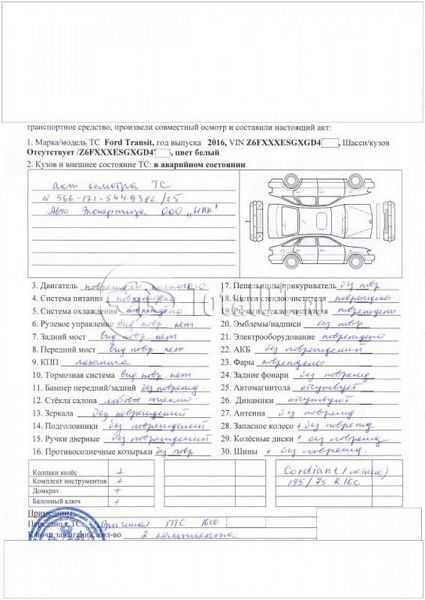 транспортное средство, произвели совместный осмотр и составили настоящий акт:
1. Марка/модель ТС Ford Transit, год выпуска 2016, VIN Z6FXXXESGXGD4, Шасси/кузов
Отсутствует /Z6FXXXESGXGD4, цвет белый
2. Кузов и внешнее состояние ТС: в аварийном состоянии
акт осмотра ТС
N 566-171-5449386/25
Авто Экспертиза ООО
3. Двигатель поврежден полностью
4. Система питания повреждена
5. Система охлаждения повреждено
6. Рулевое управление вид повр нет
7. Задний мост вид повр нет
8. Передний мост вид повр нет
9. КПП механика
10. Тормозная система вид повр нет
11. Бампер передний/задний без поврежд
12. Стёкла салона лобовое
13. Зеркала без повреждений
14. Подголовники без повреждений
15. Ручки дверные без повреждений
16. Противосолнечные козырьки без повр
17. Пепельницы/прикуриватель без повр
18. Щетки стеклоочистителя повреждено
19. повреждено
20. Эмблемы/надписи без повр
21. Электрооборудование повреждено
22. АКБ без повреждений
23. Фары повреждено
24. Задние фонари без поврежд
25. Автомагнитола отсутствует
26. Динамики отсутствуют
27. Антенна без поврежд
28. Запасное колесо + без поврежд
29. Колёсные диски без поврежд
30. Шины + без поврежд
Колпаки колёс +
Комплект инструментов +
Домкрат +
Балонный ключ +
Cordiant
195/75 R16C
Примечание:
Передано с ТС: Оригинал ПТС
Ключи зажигания, кол-во 2 комплекта